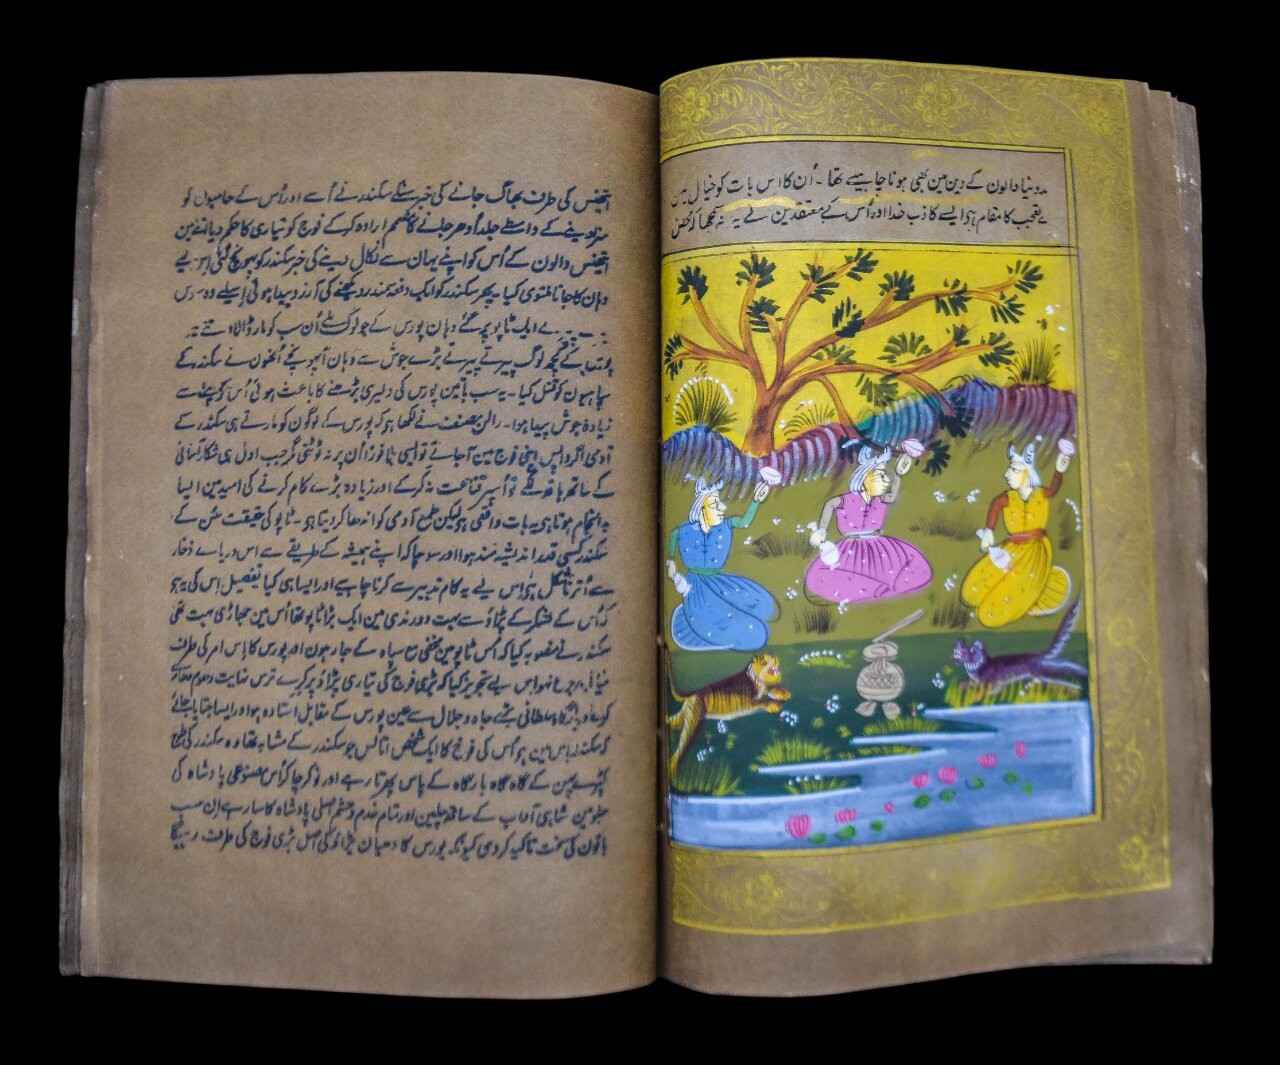 مدو بنیاد الون کے دین مین بھی ہونا چاہیے تھا۔ اُن کا اس بات کو خیال مین
تعجب کا مقام ہوا ایسے کاذب خدا اور اُس کے معتقدین نے یہ نہ سمجھا کہ محض
کی طرف بھاگ جانے کی خبر سکندر نے اُسے اور اُس کے حامیون کو
سزا دینے کے واسطے جلد اُودھر جانے کا ارادہ کر کے فوج کو تیاری کا حکم دیا
والون کے اُس کو اپنے یہان سے نکال دینے کی خبر سکندر کو پہونچ گئی اس لیے
وہان کا جانا ملتوی کیا۔ پھر سکندر کو ایک دفعہ سمندر دیکھنے کی آرزو پیدا ہوئی اسلیے وہ
ایک ٹاپو پر گئے وہان پورس کے جو لوگ تھے اُن سب کو مار ڈالا
کے کچھ لوگ پیرتے پیرتے بڑے جوش سے وہان اُنھون نے سکندر کے
سپاہیون کو قتل کیا۔ یہ سب باتین پورس کی دلیری بڑھنے کا باعث ہوئی اُس کو
زیادہ جوش پیدا ہوا۔ مصنف نے لکھا ہو کہ پورس کے لوگون کو مارتے ہی سکندر کے
آدمی اگر واپس اپنی فوج مین آجاتے تو ایسی بلا فوراً اُن پر نہ ٹوٹتی مگر جب اول ہی شکار آسانی
کے ساتھ ہاتھ لگے تو اُسپر قناعت نہ کر کے اور زیادہ بڑے کام کرنے کی امید مین ایسا
بد انجام ہوتا ہی یہ بات واقعی ہو لیکن طمع آدمی کو اندھا کر دیتا ہو۔ ٹاپو کی حقیقت سن کے
سکندر کسی قدر اندیشہ مند ہوا اور سوچا کہ اپنے ہمیشہ کے طریقے سے اس دریاے ذخار
سے اُترنا مشکل ہو اس لیے یہ کام تدبیر سے کرنا چاہیے اور ایسا ہی کیا تفصیل اس کی یہ ہو
کہ اُس کے لشکر کے پڑاؤ سے بہت دور ندی مین ایک بڑا ٹاپو تھا اُس مین جھاڑی بہت تھی
سکندر نے منصوبہ کیا کہ اُس ٹاپو مین مخفی مع سپاہ کے جا رہون اور پورس کا اس امر کی طرف
اس لیے تجویز کیا کہ بڑی فوج کی تیاری پڑاؤ پر کرے ترس نہایت دھوم دھام
سلطانی بڑے جاہ و جلال سے عین پورس کے مقابل استادہ ہوا اور ایسا جتایا جائے
کہ سکندر اس مین ہو اُس کی فوج کا ایک شخص اٹالس جو سکندر کے مشابہ تھا وہ سکندر کی طرح
کپڑے پہن کے گاہ گاہ بارگاہ کے پاس پھرتا رہے اور نوکر چاکر اُس مصنوعی بادشاہ کی
جلو مین شاہی آداب کے ساتھ چلین اور تمام خدم و حشم اصلی بادشاہ کا سا رہے اِن سب
باتون کی سخت تاکید کر دی کیونکہ پورس کا دھیان پڑاؤ کی اصل بڑی فوج کی طرف رہیگا